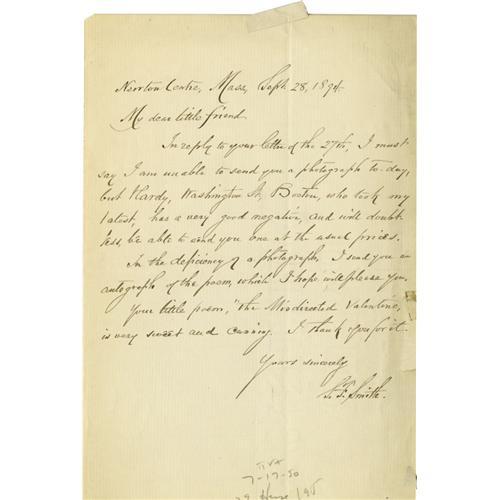 Newton Centre, Mass, Sept. 28, 1894.
My dear little friend
In reply to your letter of the 27th, I must
say I am unable to send you a photograph to-day,
but Hardy, Washington St, Boston, who took my
latest, has a very good negative, and will doubt
less, be able to send you one at the usual prices.
In the deficiency of a photograph, I send you an
autograph of the poem, which I hope will please you.
Your little poem, "the Misdirected Valentine,
is very sweet and cunning. I thank you for it.
Yours sincerely
S. F. Smith.
7-17-50